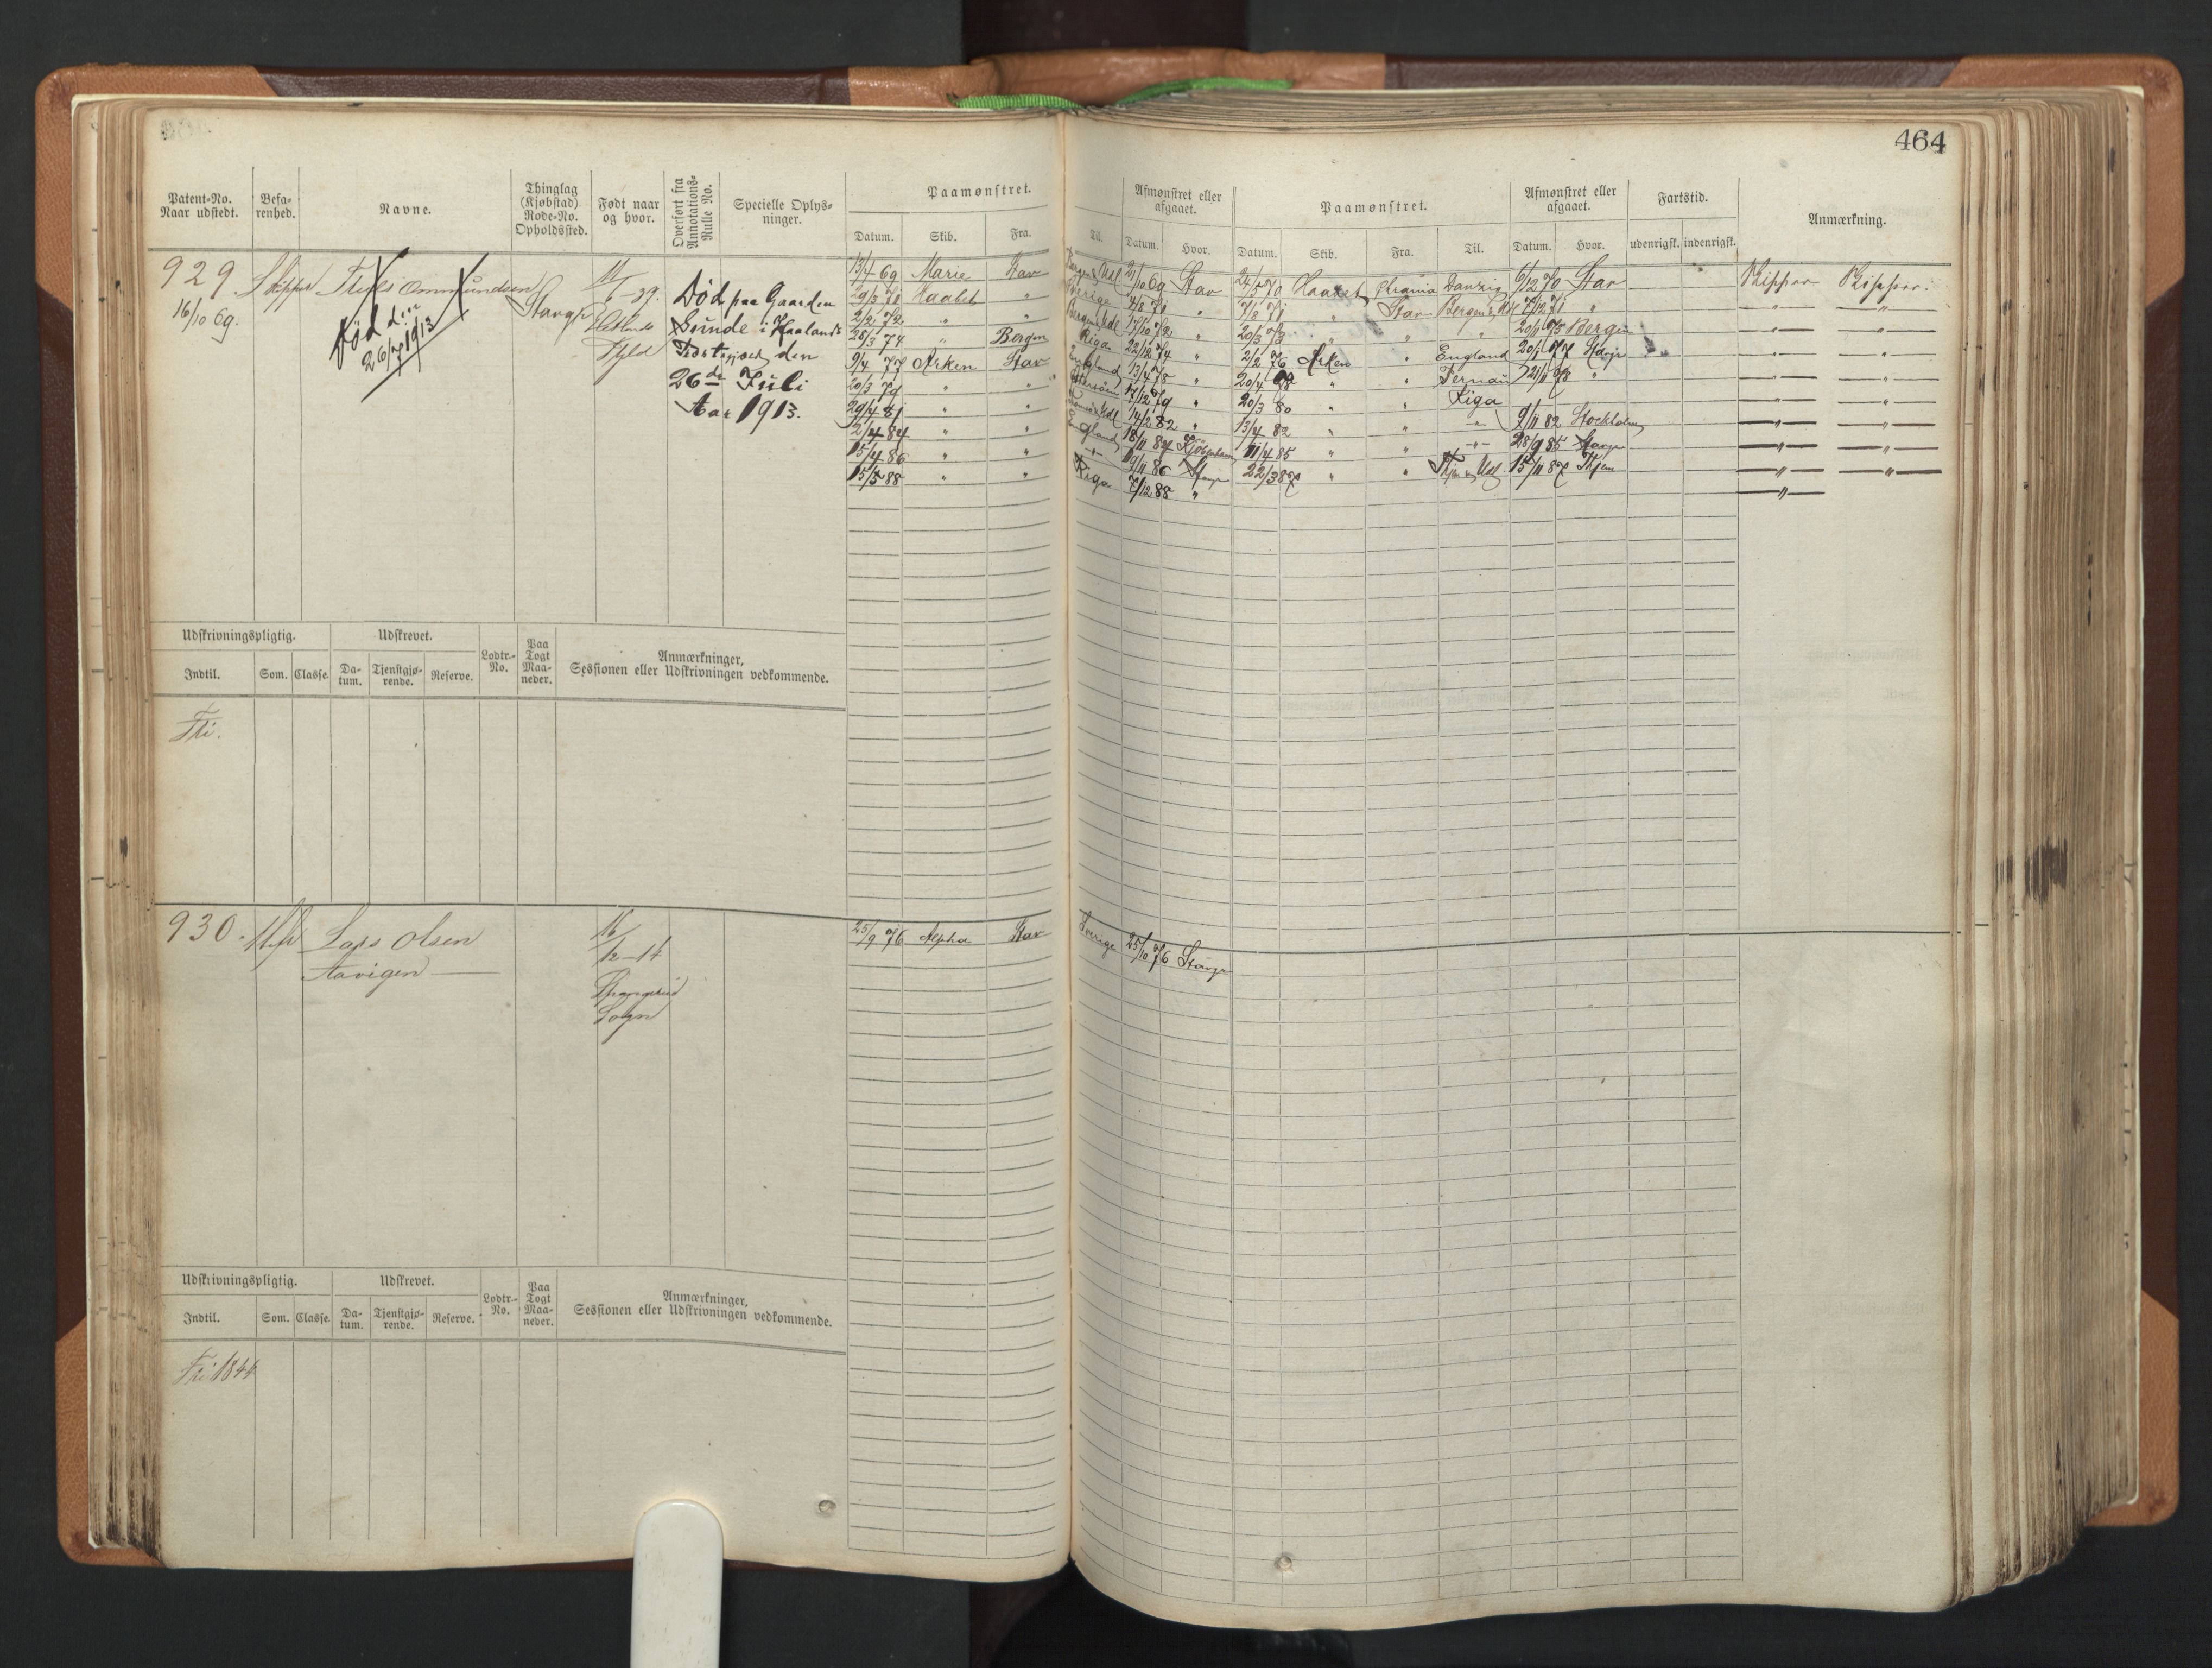 464
Patent-No. Naar udstedt.
Befa-renhed.
Navne.
Thinglag (Kjøbstad) Rode-No. Opholdssted.
Født naar og hvor.
Overført fra Annotations-Rulle No.
Specielle Oplys-ninger.
Paamønstret.
Datum. Skib. Fra. Til.
Afmønstret eller afgaaet.
Datum. Hvor.
Paamønstret.
Datum. Skib. Fra. Til.
Afmønstret eller afgaaet.
Datum. Hvor.
Fartstid.
udenrigsk. indenrigsk.
Anmærkning.
929 Skipper Ommundsen
16/10 69.
Død den
26/7 1913
Stavgr
11/6-39.
Hetlands
Død paa Gaarden
Sunde i Haalands
den
26de Juli
Aar 1913.
13/4 69 Marie Stav
29/3 71 Haabet "
2/2 72 " "
28/3 74 " Bergen
9/4 77 Arken Stav
20/3 79 " "
29/4 81 " "
2/4 84 " "
15/4 86 " "
15/5 88 " "
Bergen & Udl 21/10 69 Stav
Sverige 4/8 71 "
Bergen & Udl 17/10 72 "
Riga 22/12 74 "
England 13/4 78 "
17/12 79 "
14/2 82 "
England 18/11 84 Kjøbenhavn
" 19/11 86 Stavgr
Riga 7/12 88 "
24/5 70 Haabet Chrania Danzig 6/12 70 Stav
7/8 71 " Stav Bergen & Udl 7/12 71 "
20/3 73 " " " Bergen
2/2 76 Arken " England 20/1 77 Stavgr
20/4 78 " " Pernau 21/11 78 "
20/3 80 " " Riga
13/4 82 " " " 9/11 82 Stockholm
11/4 85 " " " 28/9 85 Stavgr
22/3 87 " " 15/11 87
Skipper Skipper.
Udskrivningspligtig.
Indtil. Som. Classe.
Udskrevet.
Da-tum. Tjenstgjø-rende. Reserve.
Lodtr.-No.
Paa Togt Maa-neder.
Anmærkninger, Sessionen eller Udskrivningen vedkommende.
Fri.
930. Lars Olsen
Aavigen
16/12-14
Sogn
25/9 76 Alpha Stav
Sverige 25/10 76 Stavgr
Udskrivningspligtig.
Indtil. Som. Classe.
Udskrevet.
Da-tum. Tjenstgjø-rende. Reserve.
Lodtr.-No.
Paa Togt Maa-neder.
Anmærkninger, Sessionen eller Udskrivningen vedkommende.
Fri 1844